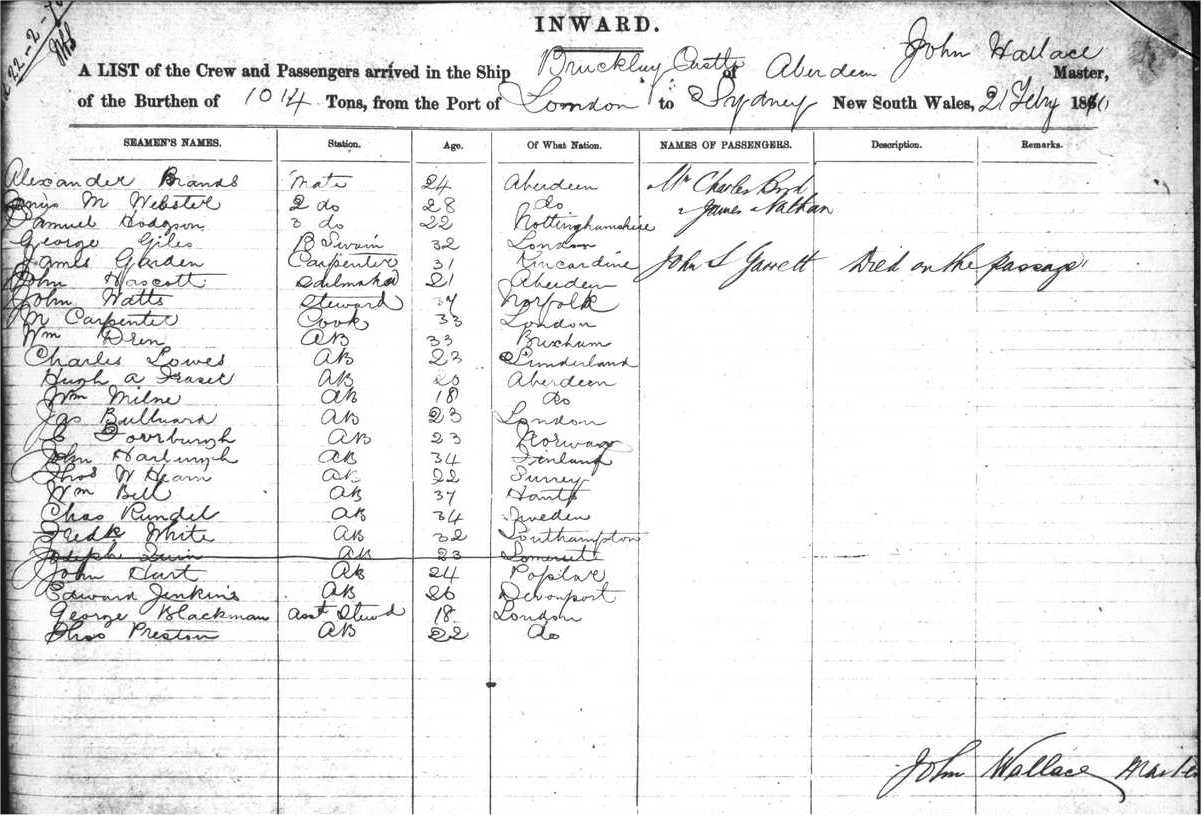 22-2-70
INWARD.
A LIST of the Crew and Passengers arrived in the Ship Bruckley Castle of Aberdeen John Wallace Master,
of the Burthen of 1014 Tons, from the Port of London to Sydney New South Wales, 21 Febry 1870
SEAMEN'S NAMES. Station. Age. Of What Nation. NAMES OF PASSENGERS. Description. Remarks.
Alexander Brands Mate 24 Aberdeen Mr Charles Boyd
M Webster 2 do 28 do " James Nathan
Samuel Hodgson 3 do 22 Nottinghamshire
George Giles B Swain 32 London
James Garden Carpenter 31 Kincardine John S Garrett Died on the passage
John Hascott Sailmaker 21 Aberdeen
John Watts Steward 37 Norfolk
M Carpenter Cook 33 London
Wm Dren AB 33 Brixham
Charles Lowes AB 23 Sunderland
Hugh A Fraser AB 20 Aberdeen
Wm Milne AB 18 do
Jas Bullward AB 23 London
AB 23 Norway
John Harburgh AB 34 Finland
Thos W Hearn AB 22 Surrey
Wm Bell AB 37 Hants
Chas Rundel AB 34 Sweden
Fredk White AB 32 Southampton
Joseph Quin AB 23 Somerset
John Hart AB 24 Poplar
Edward Jenkins AB 26 Devonport
George Blackman Asst Stewd 18 London
Thos Preston AB 22 do
John Wallace Master